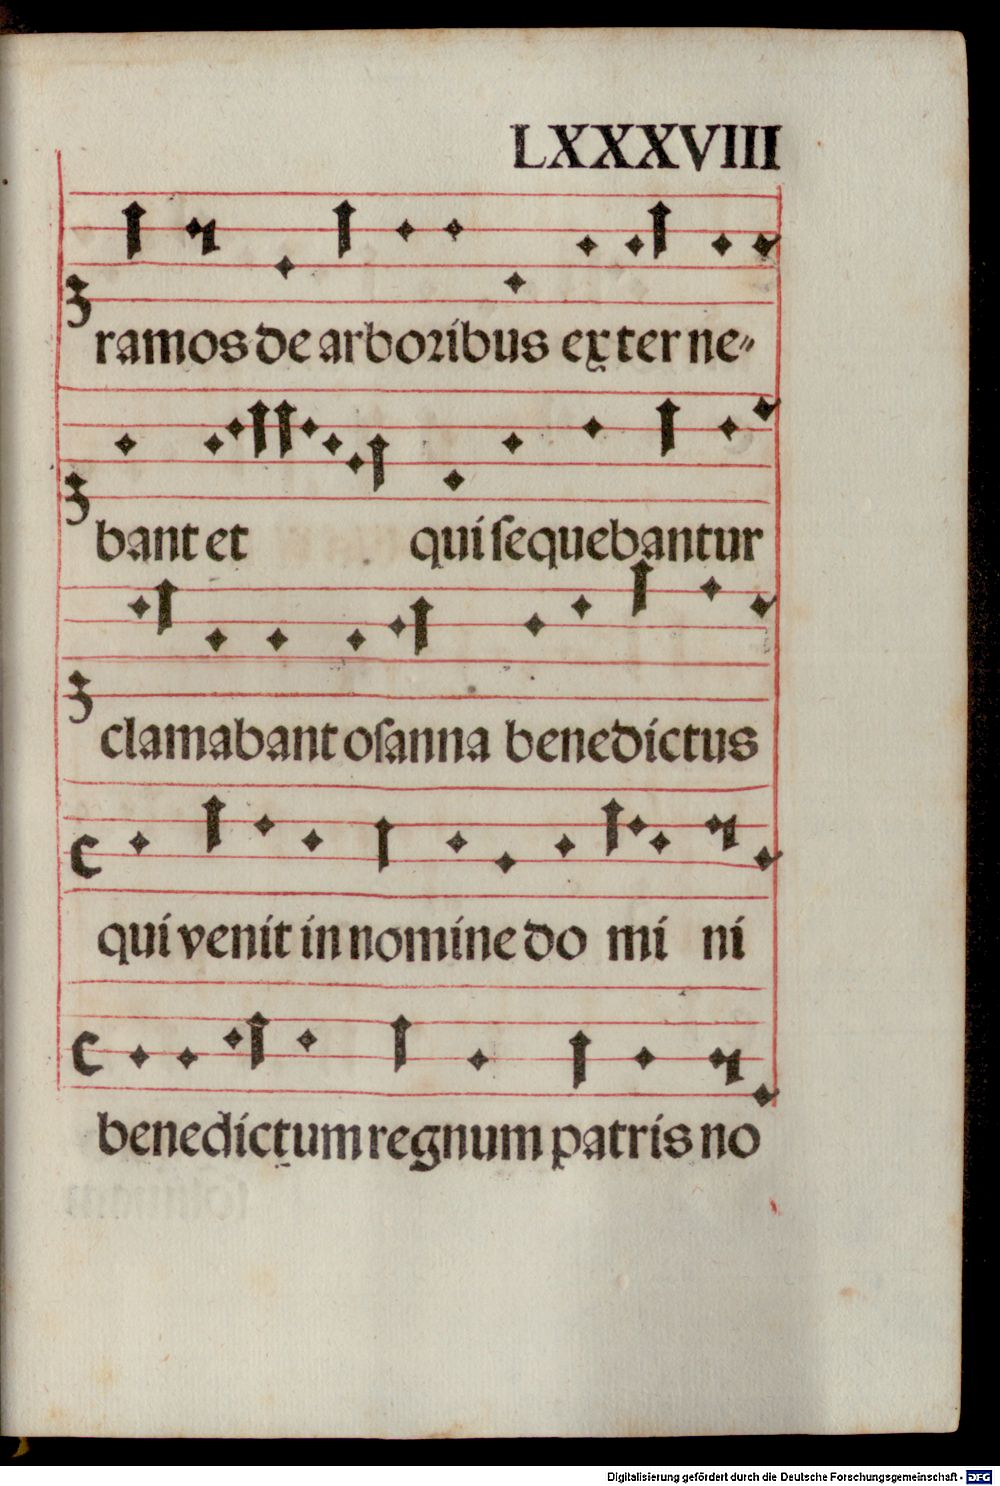 LXXXVIII
ramos de arboribus externe-
bant et qui sequebantur
clamabant osanna benedictus
qui venit in nomine do mi ni
benedictum regnum patris no
Digitalisierung gefördert durch die Deutsche Forschungsgemeinschaft - DFG